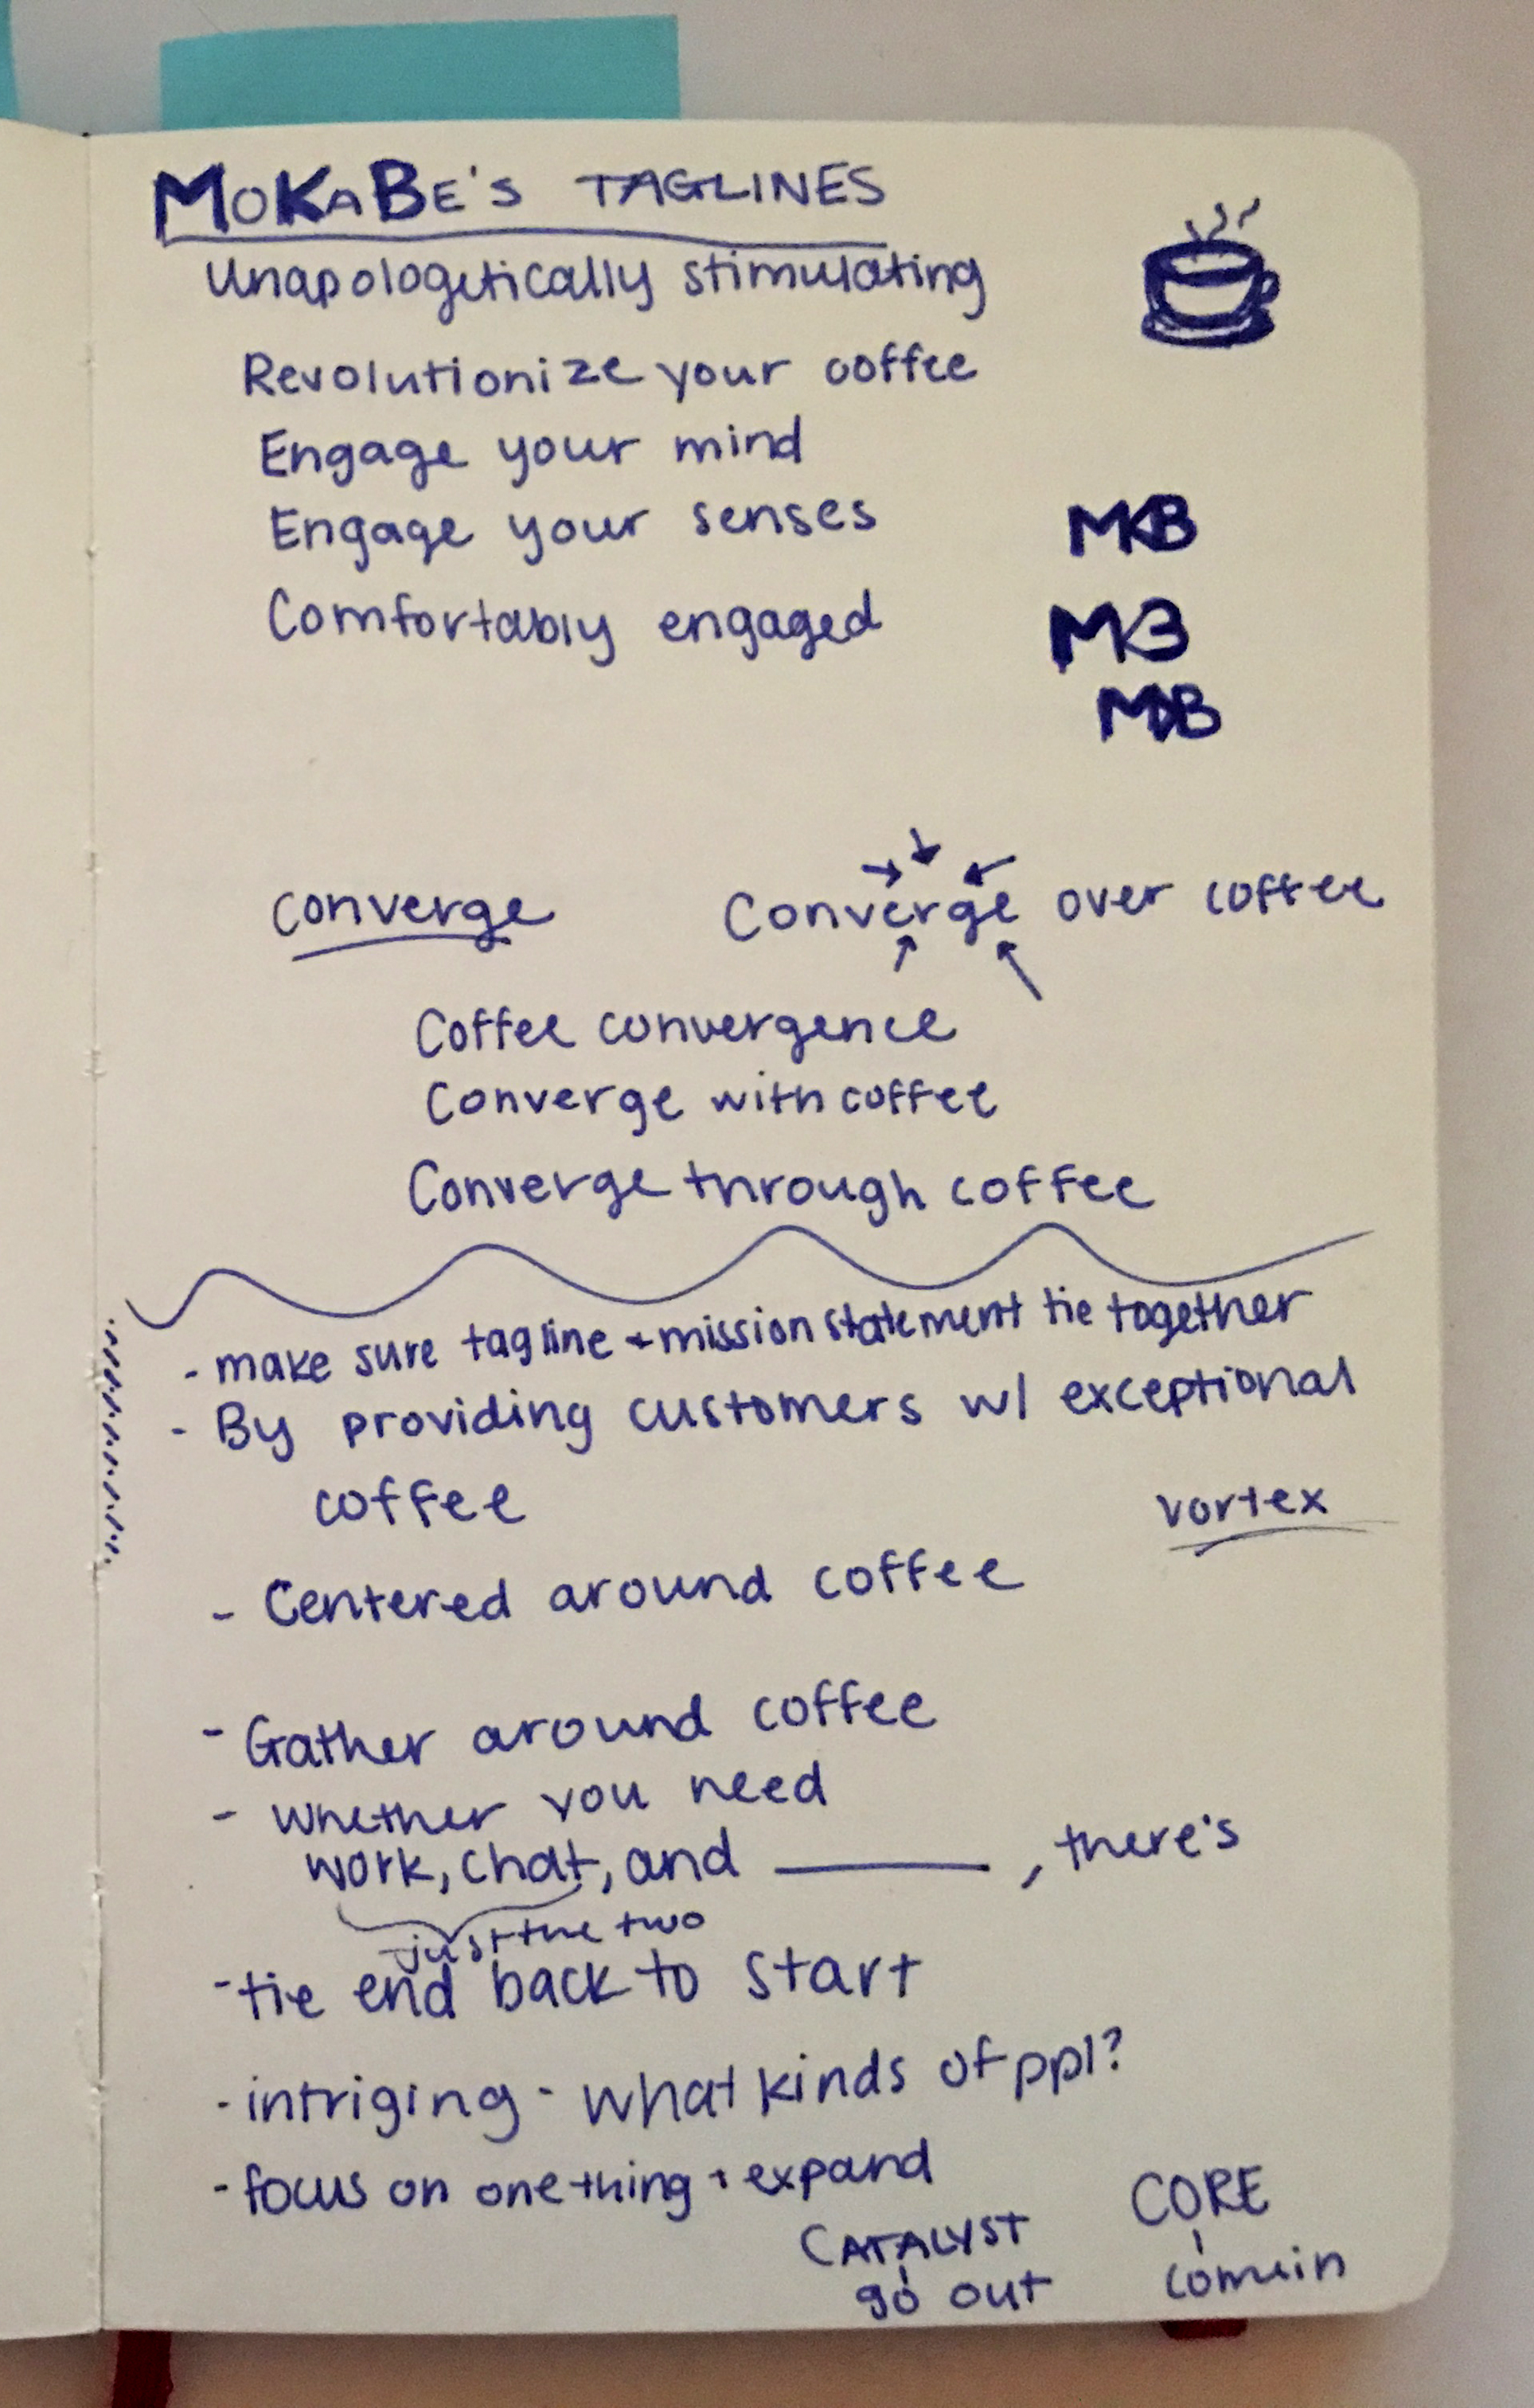 MOKABE'S TAGLINES
Unapologetically stimulating
Revolutionize your coffee
Engage your mind
Engage your senses
MKB
Comfortably engaged
converge
Converge over coffee
Coffee convergence
Converge with coffee
Converge through coffee
- make sure tagline + mission statement tie together
- By providing customers w/ exceptional
coffee
vortex
- Centered around coffee
- Gather around coffee
- Whether you need
work, chat, and ______, there's
just the two
- tie end back to start
- intriging - what kinds of ppl?
- focus on one thing + expand
CATALYST
go out
CORE
come in